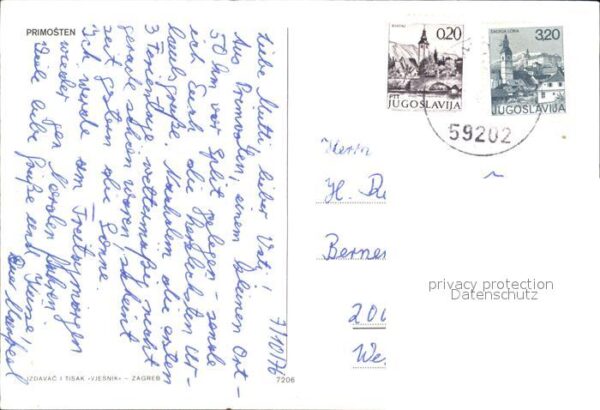 PRIMOŠTEN
7/10/76
Liebe Mutti, lieber Vati!
Aus Primosten, einem kleinen Ort –
50 km vor Split gelegen – sende
ich Euch die herzlichsten Ur-
laubsgrüße. Nachdem die ersten
3 Ferientage wettermäßig nicht
gerade schön waren, scheint
seit gestern die Sonne.
Ich werde am Freitagmorgen
wieder gen Norden fahren.
Viele liebe Grüße und Küsse,
Eu Manfred
IZDAVAČ I TISAK »VJESNIK« – ZAGREB
7206
BLED
0,20
PTT
JUGOSLAVIJA
ŠKOFJA LOKA
3,20
JUGOSLAVIJA
59202
Herrn
H. Ru
Berner
200
We
privacy protection
Datenschutz